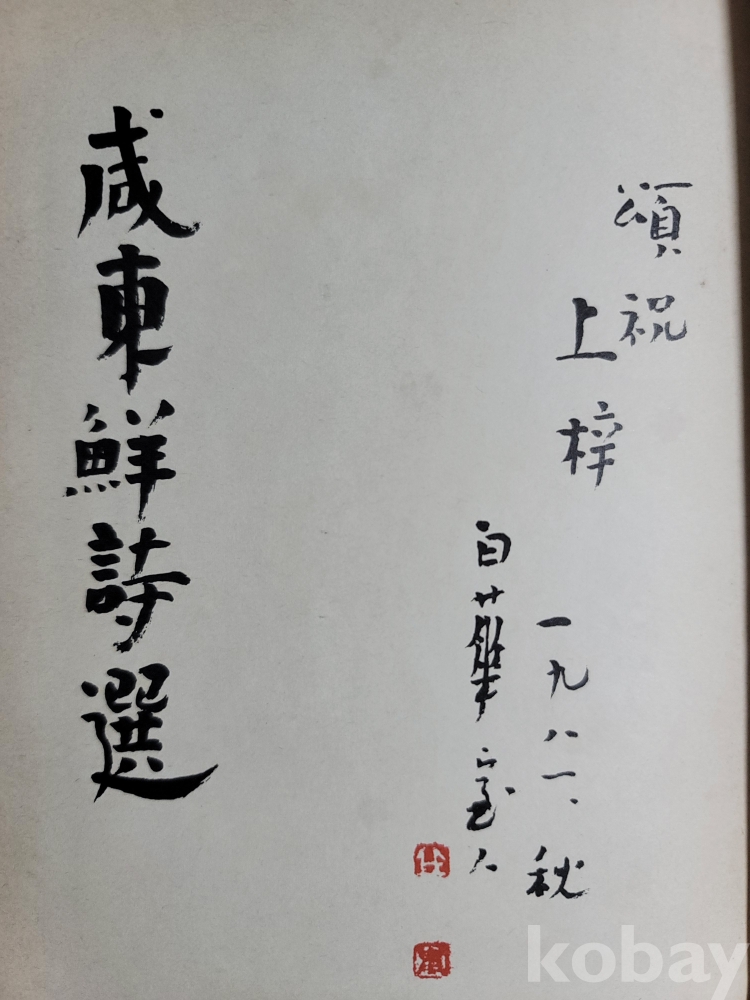 頌祝
上梓
一九八一、秋
白華室人
咸東鮮詩選
kobay